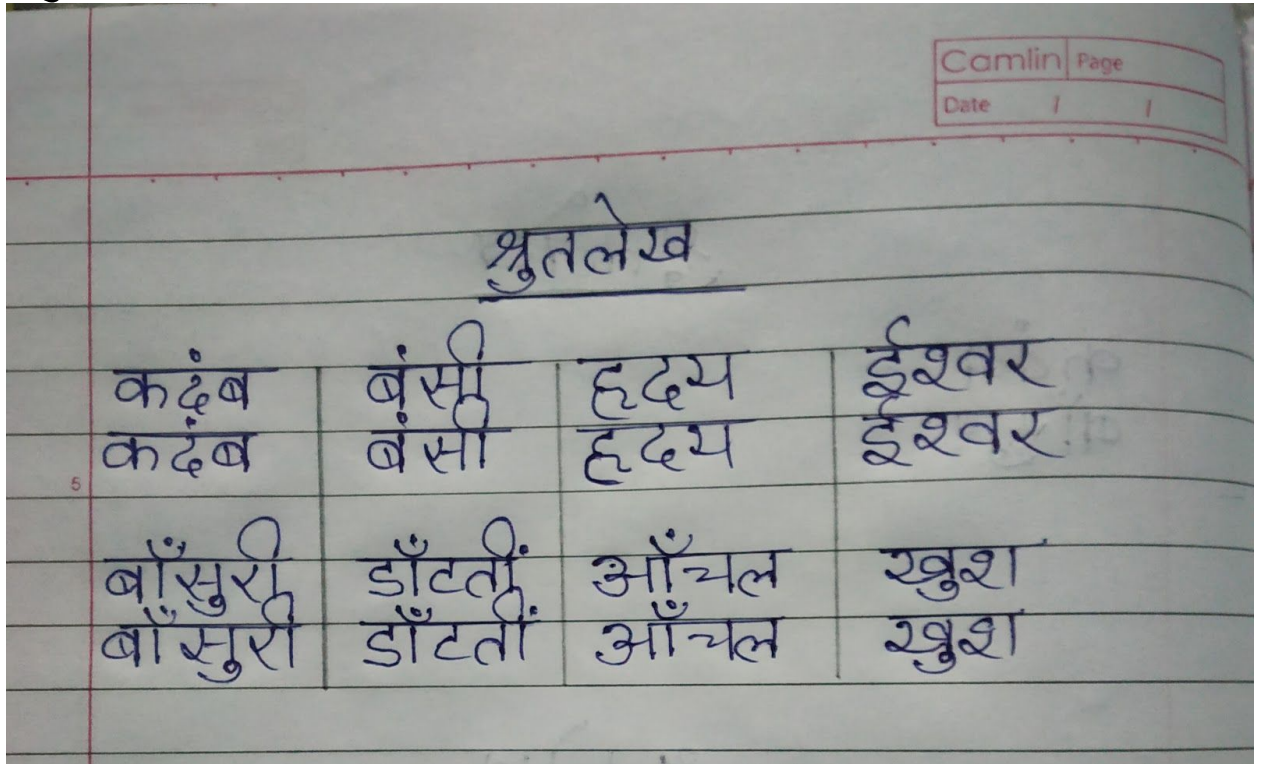 Camlin Page
Date / /
श्रुतलेख
कदंब बंसी हृदय ईश्वर
कदंब बंसी हृदय ईश्वर
5
बाँसुरी डाँटतीं आँचल खुश
बाँसुरी डाँटतीं आँचल खुश